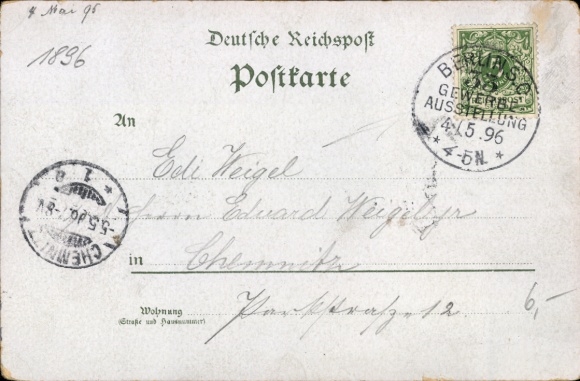 4 Mai 96
1896
Deutsche Reichspost
Postkarte
BERLIN S.O.
GEWERBE
AUSSTELLUNG
4/5.96
* 4-5N. *
An
Edi Weigel
Herrn Eduard Weigel jr
in Chemnitz
Wohnung
(Straße und Hausnummer)
Parkstraße 12
6,-
CHEMNITZ
5.5.96.
* 1 *